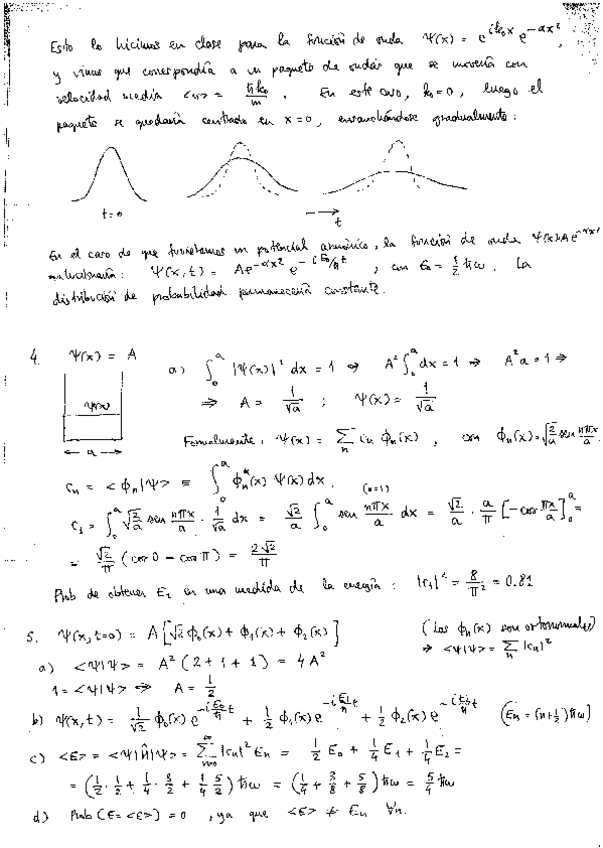 Esto lo hicimos en clase para la función de onda Ψ(x) = e^{ik₀x} e^{-αx²},
y vimos que correspondía a un paquete de ondas que se movería con
velocidad media <v> = ħk₀/m . En este caso, k₀=0, luego el
paquete se quedaría centrado en x=0, ensanchándose gradualmente:
t=0
t
En el caso de que tuviéramos un potencial armónico, la función de onda Ψ(x)=Ae^{-αx²}
evolucionaría: Ψ(x,t) = Ae^{-αx²} e^{-iE₀/ħ t} , con E₀ = 1/2 ħω. La
distribución de probabilidad permanecería constante.
4. Ψ(x) = A
Ψ(x)
← a →
a) ∫₀^a |Ψ(x)|² dx = 1 ⇒ A² ∫₀^a dx = 1 ⇒ A² a = 1 ⇒
⇒ A = 1/√a ; Ψ(x) = 1/√a
Formalmente, Ψ(x) = Σ_n c_n ϕ_n(x) , con ϕ_n(x) = √(2/a) sen nπx/a
c_n = <ϕ_n|Ψ> = ∫₀^a ϕ_n*(x) Ψ(x) dx .
(n=1)
c₁ = ∫₀^a √(2/a) sen nπx/a · 1/√a dx = √2/a ∫₀^a sen πx/a dx = √2/a · a/π [-cos πx/a]₀^a =
= √2/π (cos 0 - cos π) = 2√2/π
Prob de obtener E₁ en una medida de la energía: |c₁|² = 8/π² = 0.81
5. Ψ(x,t=0) = A[√2 ϕ₀(x) + ϕ₁(x) + ϕ₂(x)]
(Los ϕ_n(x) son ortonormales)
⇒ <Ψ|Ψ> = Σ_n |c_n|²
a) <Ψ|Ψ> = A² (2 + 1 + 1) = 4A²
1 = <Ψ|Ψ> ⇒ A = 1/2
b) Ψ(x,t) = 1/√2 ϕ₀(x) e^{-i E₀/ħ t} + 1/2 ϕ₁(x) e^{-i E₁/ħ t} + 1/2 ϕ₂(x) e^{-i E₂/ħ t} (E_n = (n+1/2) ħω)
c) <E> = <Ψ|Ĥ|Ψ> = Σ_{n=0}^∞ |c_n|² E_n = 1/2 E₀ + 1/4 E₁ + 1/4 E₂ =
= (1/2 · 1/2 + 1/4 · 3/2 + 1/4 5/2) ħω = (1/4 + 3/8 + 5/8) ħω = 5/4 ħω
d) Prob (E = <E>) = 0 , ya que <E> ≠ E_n ∀n.